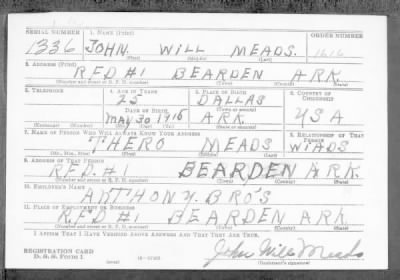 SERIAL NUMBER 1. NAME (Print) ORDER NUMBER
1336 JOHN. WILL MEADS. 1616
(First) (Middle) (Last)
2. ADDRESS (Print)
RFD #1 BEARDEN ARK.
(Number and street or R. F. D. number) (Town) (County) (State)
3. TELEPHONE 4. AGE IN YEARS 5. PLACE OF BIRTH 6. COUNTRY OF CITIZENSHIP
25 DALLAS
DATE OF BIRTH
MAY 30 1915 ARK. USA
(Mo.) (Day) (Yr.)
7. NAME OF PERSON WHO WILL ALWAYS KNOW YOUR ADDRESS 8. RELATIONSHIP OF THAT PERSON
THERO MEADS
(Mr., Mrs., Miss) (First) (Middle) (Last)
9. ADDRESS OF THAT PERSON
RFD. #1 BEARDEN ARK.
(Number and street or R. F. D. number) (Town) (County) (State)
10. EMPLOYER'S NAME
ANTHONY. BRO'S
11. PLACE OF EMPLOYMENT OR BUSINESS
RFD #1 BEARDEN ARK
(Number and street or R. F. D. number) (Town) (County) (State)
I AFFIRM THAT I HAVE VERIFIED ABOVE ANSWERS AND THAT THEY ARE TRUE.
REGISTRATION CARD
D. S. S. FORM 1 John Will Meads
(over) (Registrant's signature)